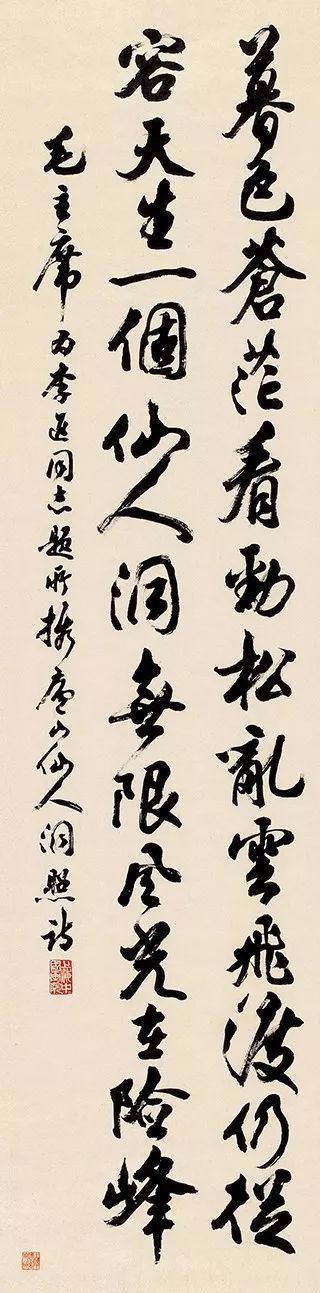 暮色蒼茫看勁松亂雲飛渡仍從
容天生一個仙人洞無限風光在險峰
毛主席為李進同志題所攝廬山仙人洞照詩